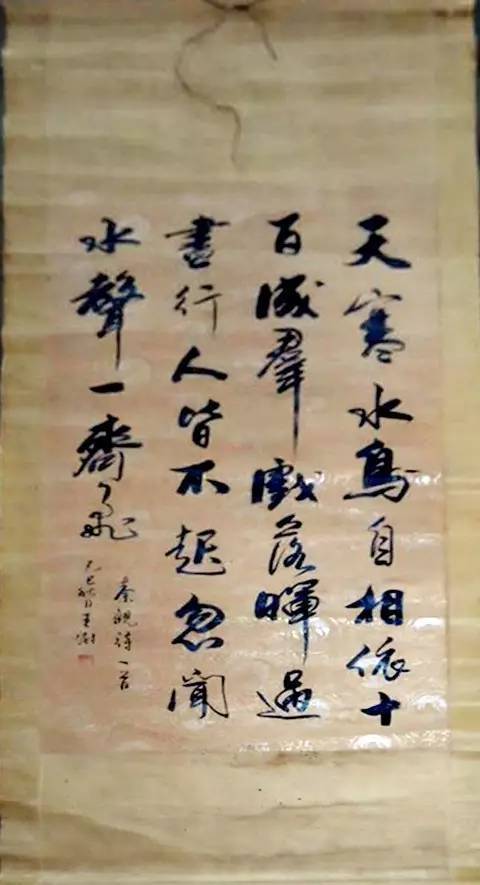 天寒水鳥自相依十
百成羣戲落暉過
盡行人皆不起忽聞
水聲一齊飛
秦觀詩一首
己巳秋日王